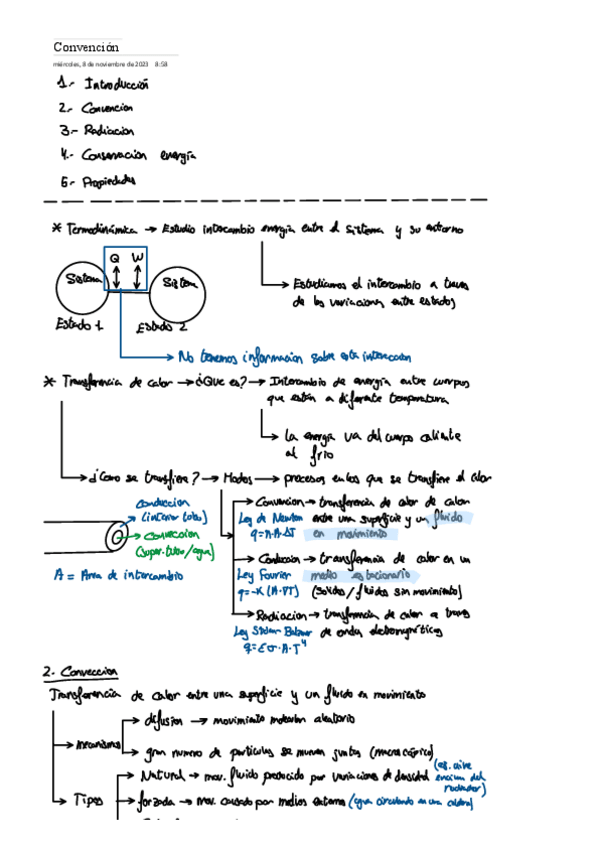 Convención
miércoles, 8 de noviembre de 2023 8:58
1.- Introducción
2.- Convencion
3.- Radiacion
4.- Conservacion energía
5.- Propiedades
* Termodinámica → Estudio intercambio energia entre el sistema y su entorno
Q W
Sistema
Sistema
Estado 1
Estado 2
→ Estudiamos el intercambio a traves
de las variaciones entre estados
→ No tenemos informacion sobre esta interaccion
* Transferencia de calor → ¿Que es? → Intercambio de energía entre cuerpos
que están a diferente temperatura
→ La energia va del cuerpo caliente
al frio
→ ¿Como se transfiere? → Modos → procesos en los que se transfiere el calor
conduccion
(interior tubo)
→ conveccion
(super. tubo/agua)
A = Area de intercambio
→ Convencion → transferencia de calor de calor
Ley de Newton entre una superficie y un fluido
q=h·A·ΔT en movimiento
→ Conduccion → transferencia de calor en un
Ley Fourier medio estacionario
q=-K(A·∇T) (solidos / fluidos sin movimiento)
→ Radiacion → transferencia de calor a traves
de ondas electromagnéticas
q=εσ·A·T⁴
2. Conveccion
Transferencia de calor entre una superficie y un fluido en movimiento
→ mecanismos
→ difusion → movimiento molecular aleatorio
→ gran numero de particulas se mueven juntas (macroscópico)
→ Tipos
→ Natural → mov. fluido producido por variaciones de densidad
(ej. aire
encima del
radiador)
→ forzada → mov. causado por medios externos (agua circulando en una caldera)